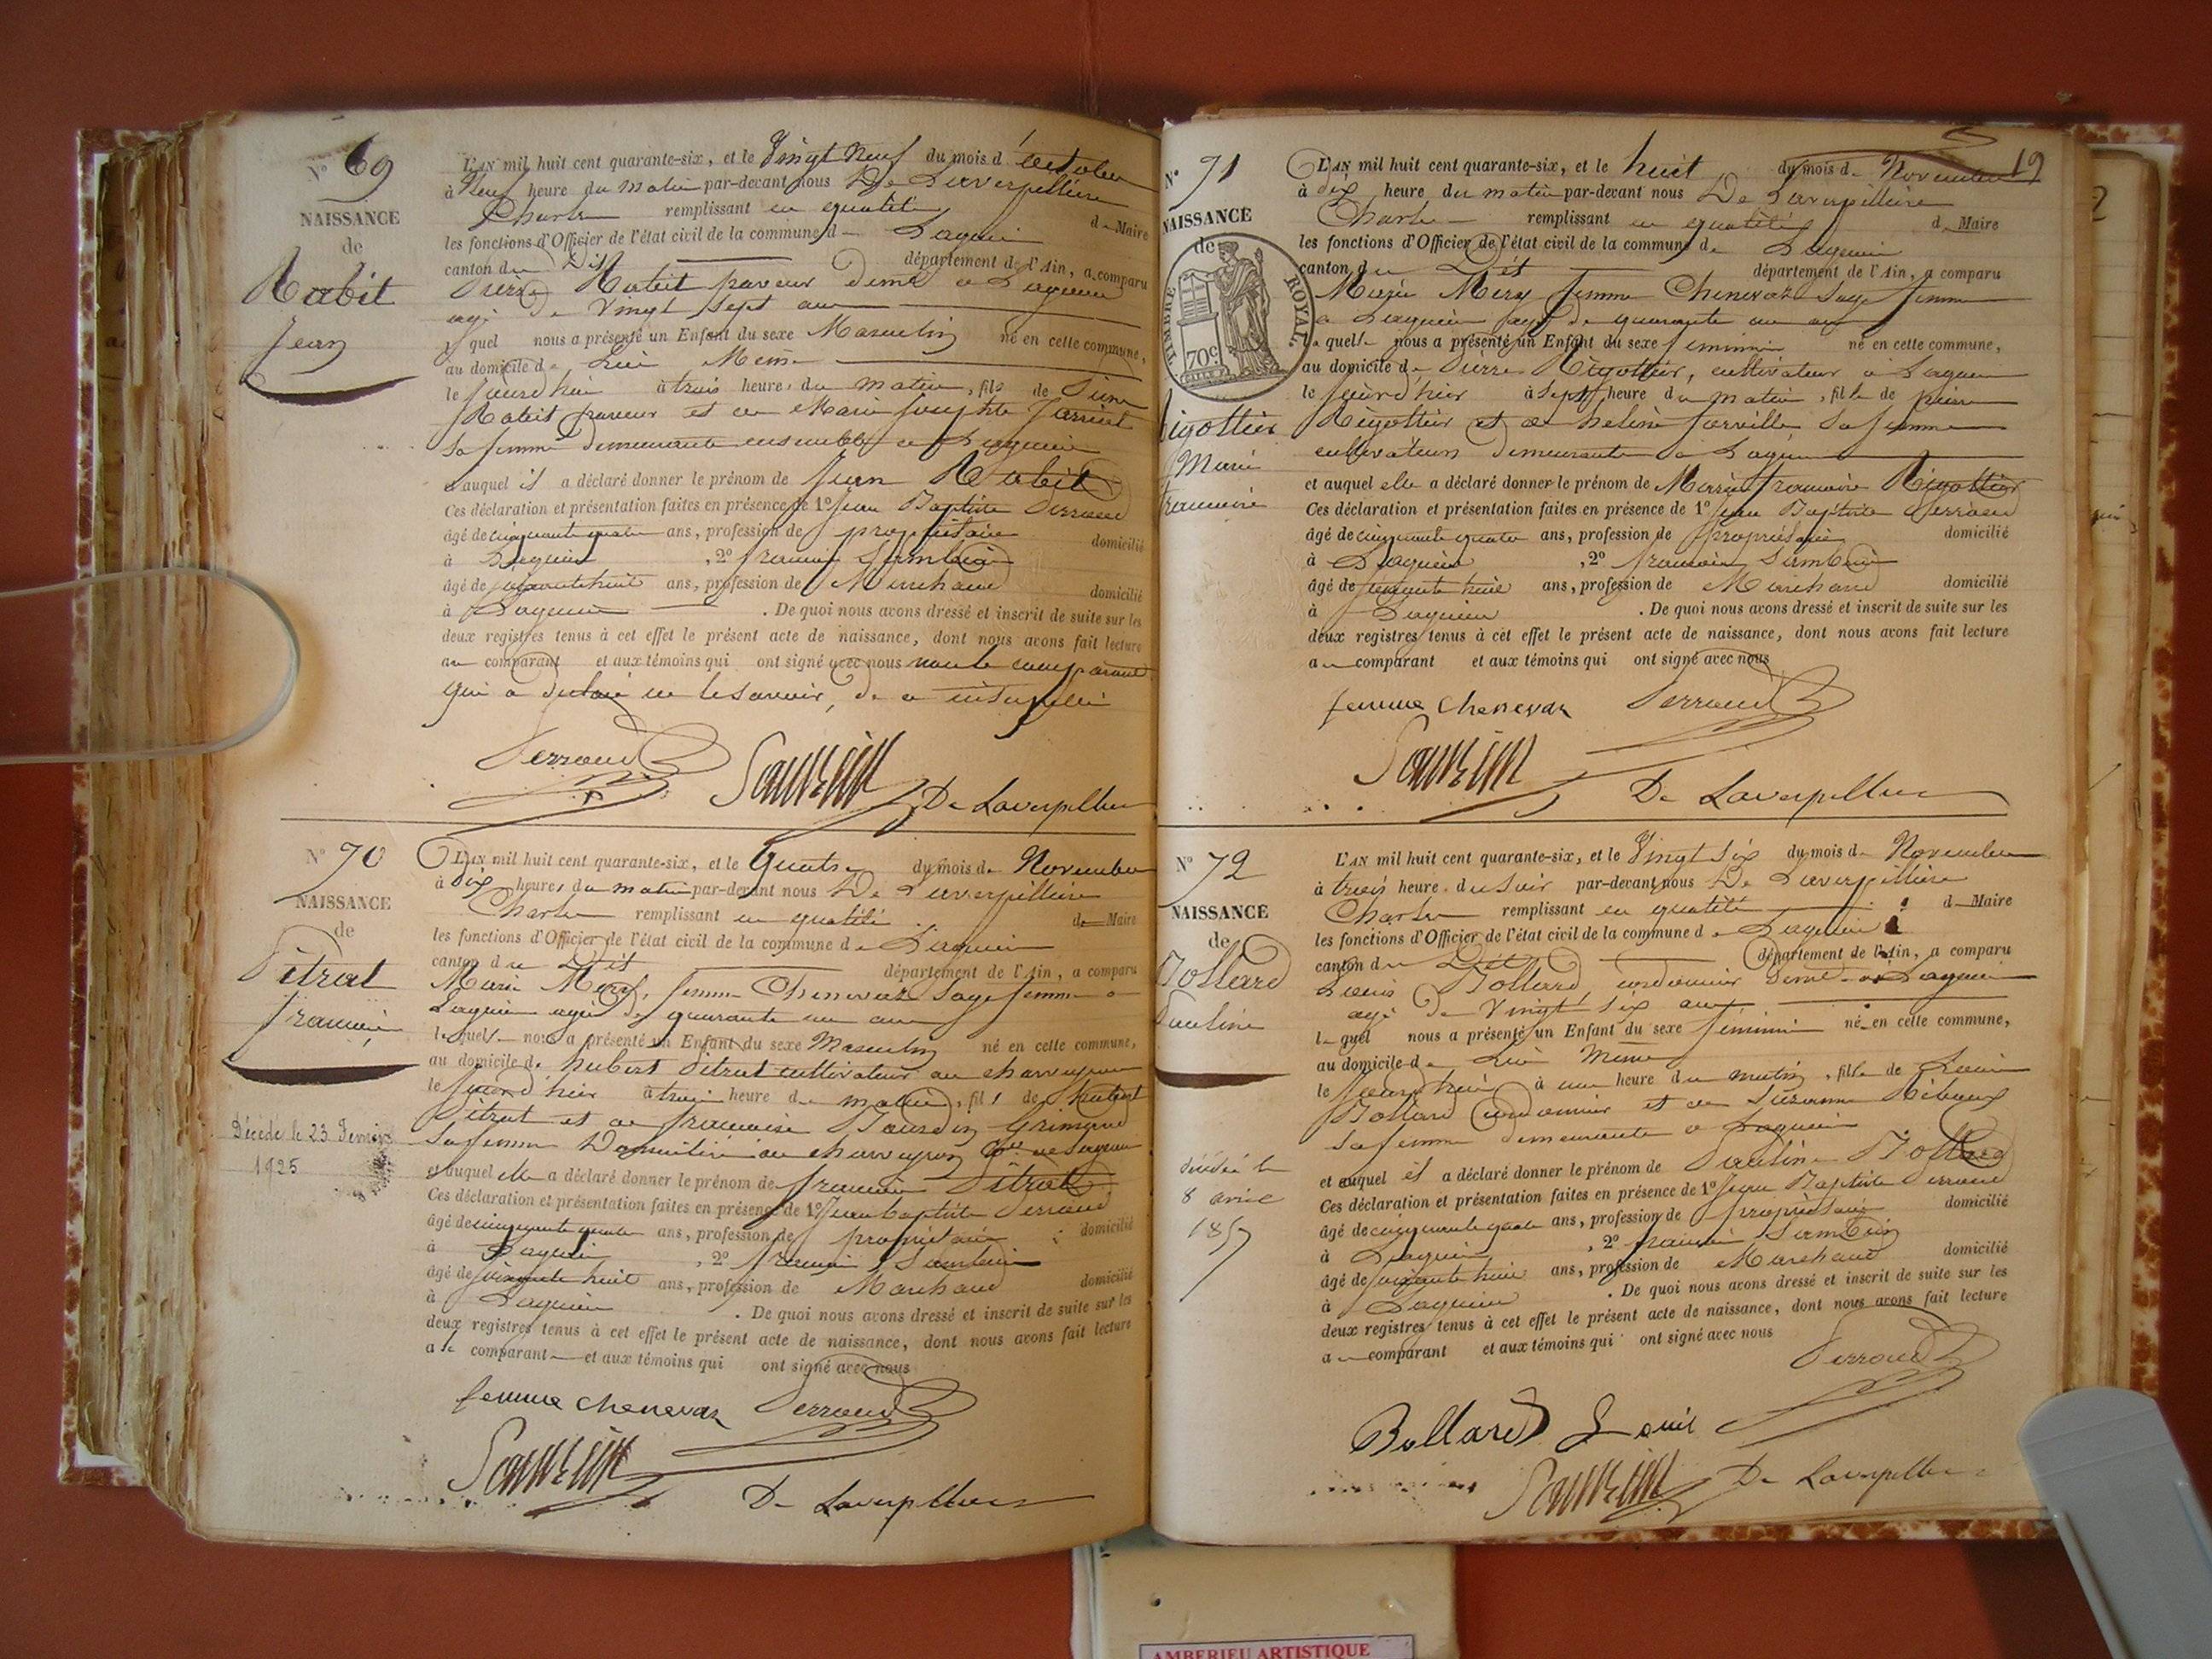 N° 69
NAISSANCE
de
Rabit
Jean
L'AN mil huit cent quarante-six, et le Vingt Neuf du mois d'octobre
à Neuf heure du matin par-devant nous De Laverpillière
Charles remplissant en qualité de Maire
les fonctions d'Officier de l'état civil de la commune de Lagnieu
canton du Dit département de l'Ain, a comparu
Pierre Rabit paveur demt a Lagnieu
agé de Vingt Sept ans
quel nous a présenté un Enfant du sexe Masculin né en cette commune,
au domicile de Lui Meme
le jourd'hui à trois heure du matin, fils de Pierre
Rabit paveur et de Marie Josephte
sa femme demeurants ensemble a Lagnieu
et auquel il a déclaré donner le prénom de Jean Rabit
Ces déclaration et présentation faites en présence de 1° Jean Baptiste Perraud
âgé de cinquante quatre ans, profession de propriétaire domicilié
à Lagnieu, 2° françois
âgé de soixante huit ans, profession de Marchand domicilié
à Lagnieu. De quoi nous avons dressé et inscrit de suite sur les
deux registres tenus à cet effet le présent acte de naissance, dont nous avons fait lecture
au comparant et aux témoins qui ont signé avec nous non le comparant
qui a déclaré ne le savoir, de ce
Perraud
De Laverpilliere
N° 70
NAISSANCE
de
Pitrat
françois
Décédé le 23
1925
L'AN mil huit cent quarante-six, et le quatre du mois de Novembre
à Dix heures du matin par-devant nous De Laverpillière
Charles remplissant en qualité de Maire
les fonctions d'Officier de l'état civil de la commune de Lagnieu
canton du Dit département de l'Ain, a comparu
Marie Mery femme Chenevaz Sage femme a
Lagnieu agée de quarante un ans
la quelle nous a présenté un Enfant du sexe Masculin né en cette commune,
au domicile de hubert Pitrat cultivateur au charveyron
le jourd'hui à trois heure du matin, fils de hubert
Pitrat et de francoise Bourdin Grimaud
sa femme Domiciliés au charveyron
et auquel elle a déclaré donner le prénom de françois Pitrat
Ces déclaration et présentation faites en présence de 1° Jean baptiste Perraud
âgé de cinquante quatre ans, profession de propriétaire domicilié
à Lagnieu, 2° françois
âgé de soixante huit ans, profession de Marchand domicilié
à Lagnieu. De quoi nous avons dressé et inscrit de suite sur les
deux registres tenus à cet effet le présent acte de naissance, dont nous avons fait lecture
a la comparante et aux témoins qui ont signé avec nous
femme chenevaz Perraud
De Laverpilliere
19
N° 71
NAISSANCE
de
TIMBRE ROYAL
70c
Rigottier
Marie
francoise
L'AN mil huit cent quarante-six, et le huit du mois de Novembre
à dix heure du matin par-devant nous De Laverpillière
Charles remplissant en qualité de Maire
les fonctions d'Officier de l'état civil de la commune de Lagnieu
canton du Dit département de l'Ain, a comparu
Marie Mery femme Chenevaz Sage femme
a Lagnieu agé de quarante un ans
la quelle nous a présenté un Enfant du sexe feminin né en cette commune,
au domicile de Pierre Rigottier, cultivateur a Lagnieu
le jourd'hui à sept heure du matin, fille de pierre
Rigottier et de heléne Jarville sa femme
cultivateurs demeurants a Lagnieu
et auquel elle a déclaré donner le prénom de Marie francoise Rigottier
Ces déclaration et présentation faites en présence de 1° Jean Baptiste Perraud
âgé de cinquante quatre ans, profession de propriétaire domicilié
à Lagnieu, 2° françois
âgé de soixante huit ans, profession de Marchand domicilié
à Lagnieu. De quoi nous avons dressé et inscrit de suite sur les
deux registres tenus à cet effet le présent acte de naissance, dont nous avons fait lecture
au comparant et aux témoins qui ont signé avec nous
femme chenevaz Perraud
De Laverpilliere
N° 72
NAISSANCE
de
Bollard
Pauline
décédée le
8 avril
1857
L'AN mil huit cent quarante-six, et le Vingt Six du mois de Novembre
à trois heure du Soir par-devant nous De Laverpillière
Charles remplissant en qualité de Maire
les fonctions d'Officier de l'état civil de la commune de Lagnieu
canton du Dit département de l'Ain, a comparu
Louis Bollard, cordonnier demt a Lagnieu
agé de Vingt Six ans
le quel nous a présenté un Enfant du sexe féminin né en cette commune,
au domicile de Lui Meme
le jourd'hui à une heure du matin, fille de Louis
Bollard Cordonnier et de Suzanne
sa femme demeurants a Lagnieu
et auquel il a déclaré donner le prénom de Pauline Bollard
Ces déclaration et présentation faites en présence de 1° Jean Baptiste Perraud
âgé de cinquante quatre ans, profession de propriétaire domicilié
à Lagnieu, 2° françois
âgé de soixante huit ans, profession de Marchand domicilié
à Lagnieu. De quoi nous avons dressé et inscrit de suite sur les
deux registres tenus à cet effet le présent acte de naissance, dont nous avons fait lecture
au comparant et aux témoins qui ont signé avec nous
Perraud
Bollard Louis
De Laverpilliere
AMBERIEU ARTISTIQUE